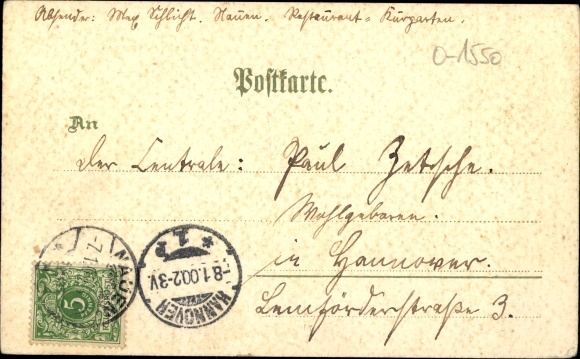 Absender: Max Schlicht. Nauen. Restaurant-Kurgarten.
O-1550
Postkarte.
An
der Centrale: Paul Zetsche.
Wohlgeboren.
in Hannover.
Lemförderstraße 3.
NAUEN
7.1
5
HANNOVER
8.1.00.2-3V.
* 1. P *